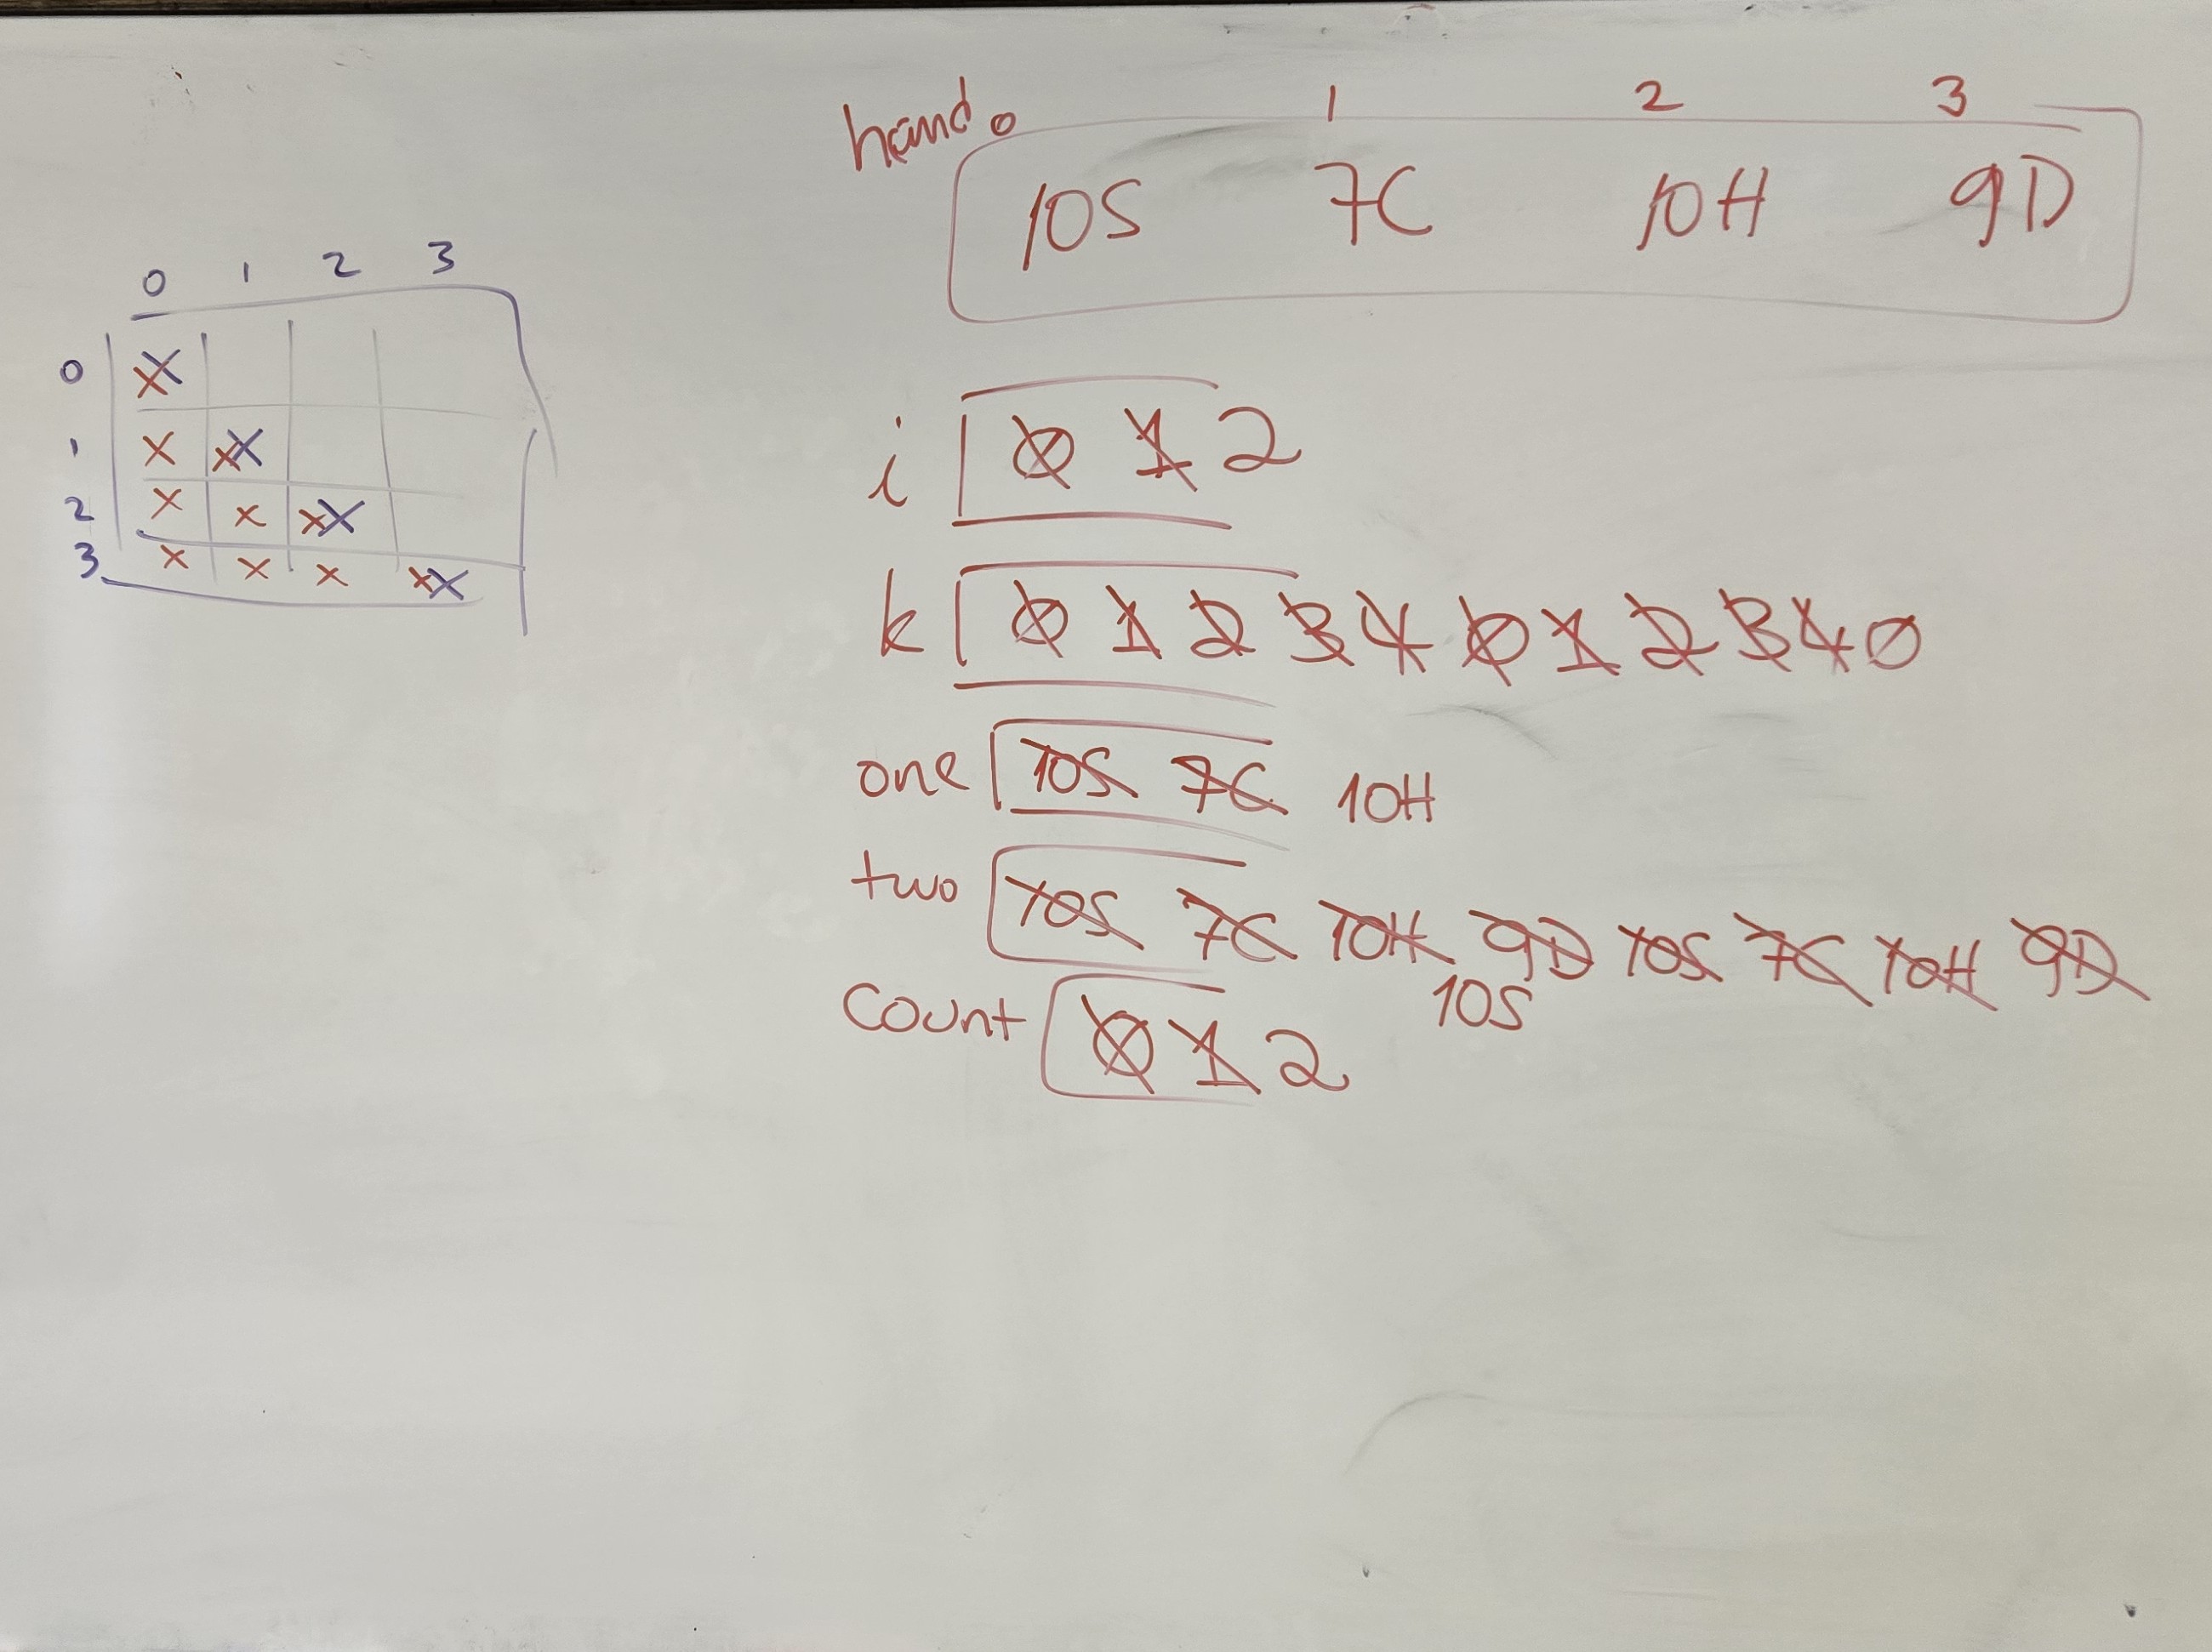 0 1 2 3
0 XX
1 X XX
2 X X XX
3 X X X XX
hand 0 1 2 3
10S 7C 10H 9D
i 0 1 2
k 0 1 2 3 4 0 1 2 3 4 0
one 10S 7C 10H
two 10S 7C 10H 9D 10S 7C 10H 9D
10S
Count 0 1 2